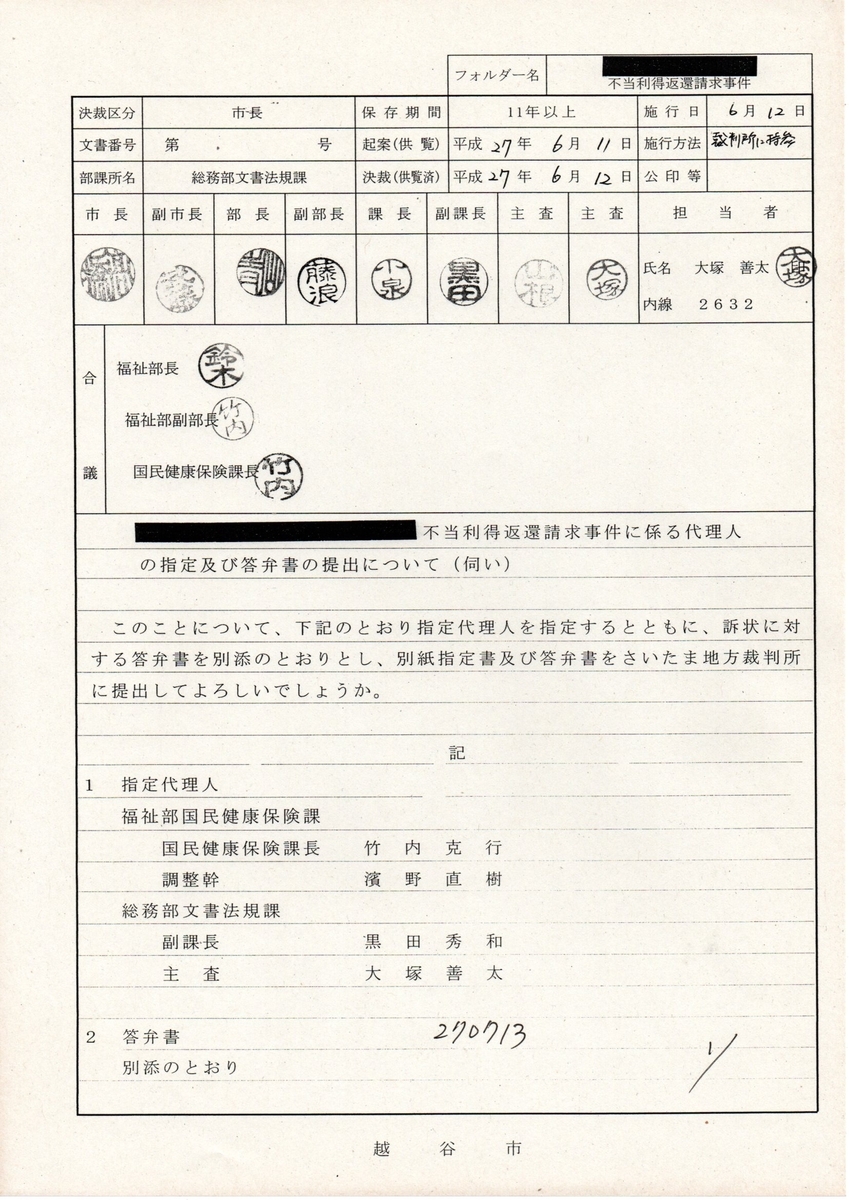 フォルダー名 不当利得返還請求事件
決裁区分 市長 保存期間 11年以上 施行日 6月12日
文書番号 第 . 号 起案(供覧) 平成27年6月11日 施行方法 裁判所に持参
部課所名 総務部文書法規課 決裁(供覧済) 平成27年6月12日 公印等
市長 副市長 部長 副部長 課長 副課長 主査 主査 担当者
藤浪 小泉 黒田 山根 大塚 氏名 大塚 善太 大塚
内線 2632
合議
福祉部長 鈴木
福祉部副部長 竹内
国民健康保険課長 竹内
不当利得返還請求事件に係る代理人
の指定及び答弁書の提出について(伺い)
このことについて、下記のとおり指定代理人を指定するとともに、訴状に対
する答弁書を別添のとおりとし、別紙指定書及び答弁書をさいたま地方裁判所
に提出してよろしいでしょうか。
記
1 指定代理人
福祉部国民健康保険課
国民健康保険課長 竹内克行
調整幹 濱野直樹
総務部文書法規課
副課長 黒田秀和
主査 大塚善太
2 答弁書 270713
別添のとおり 1/
越谷市